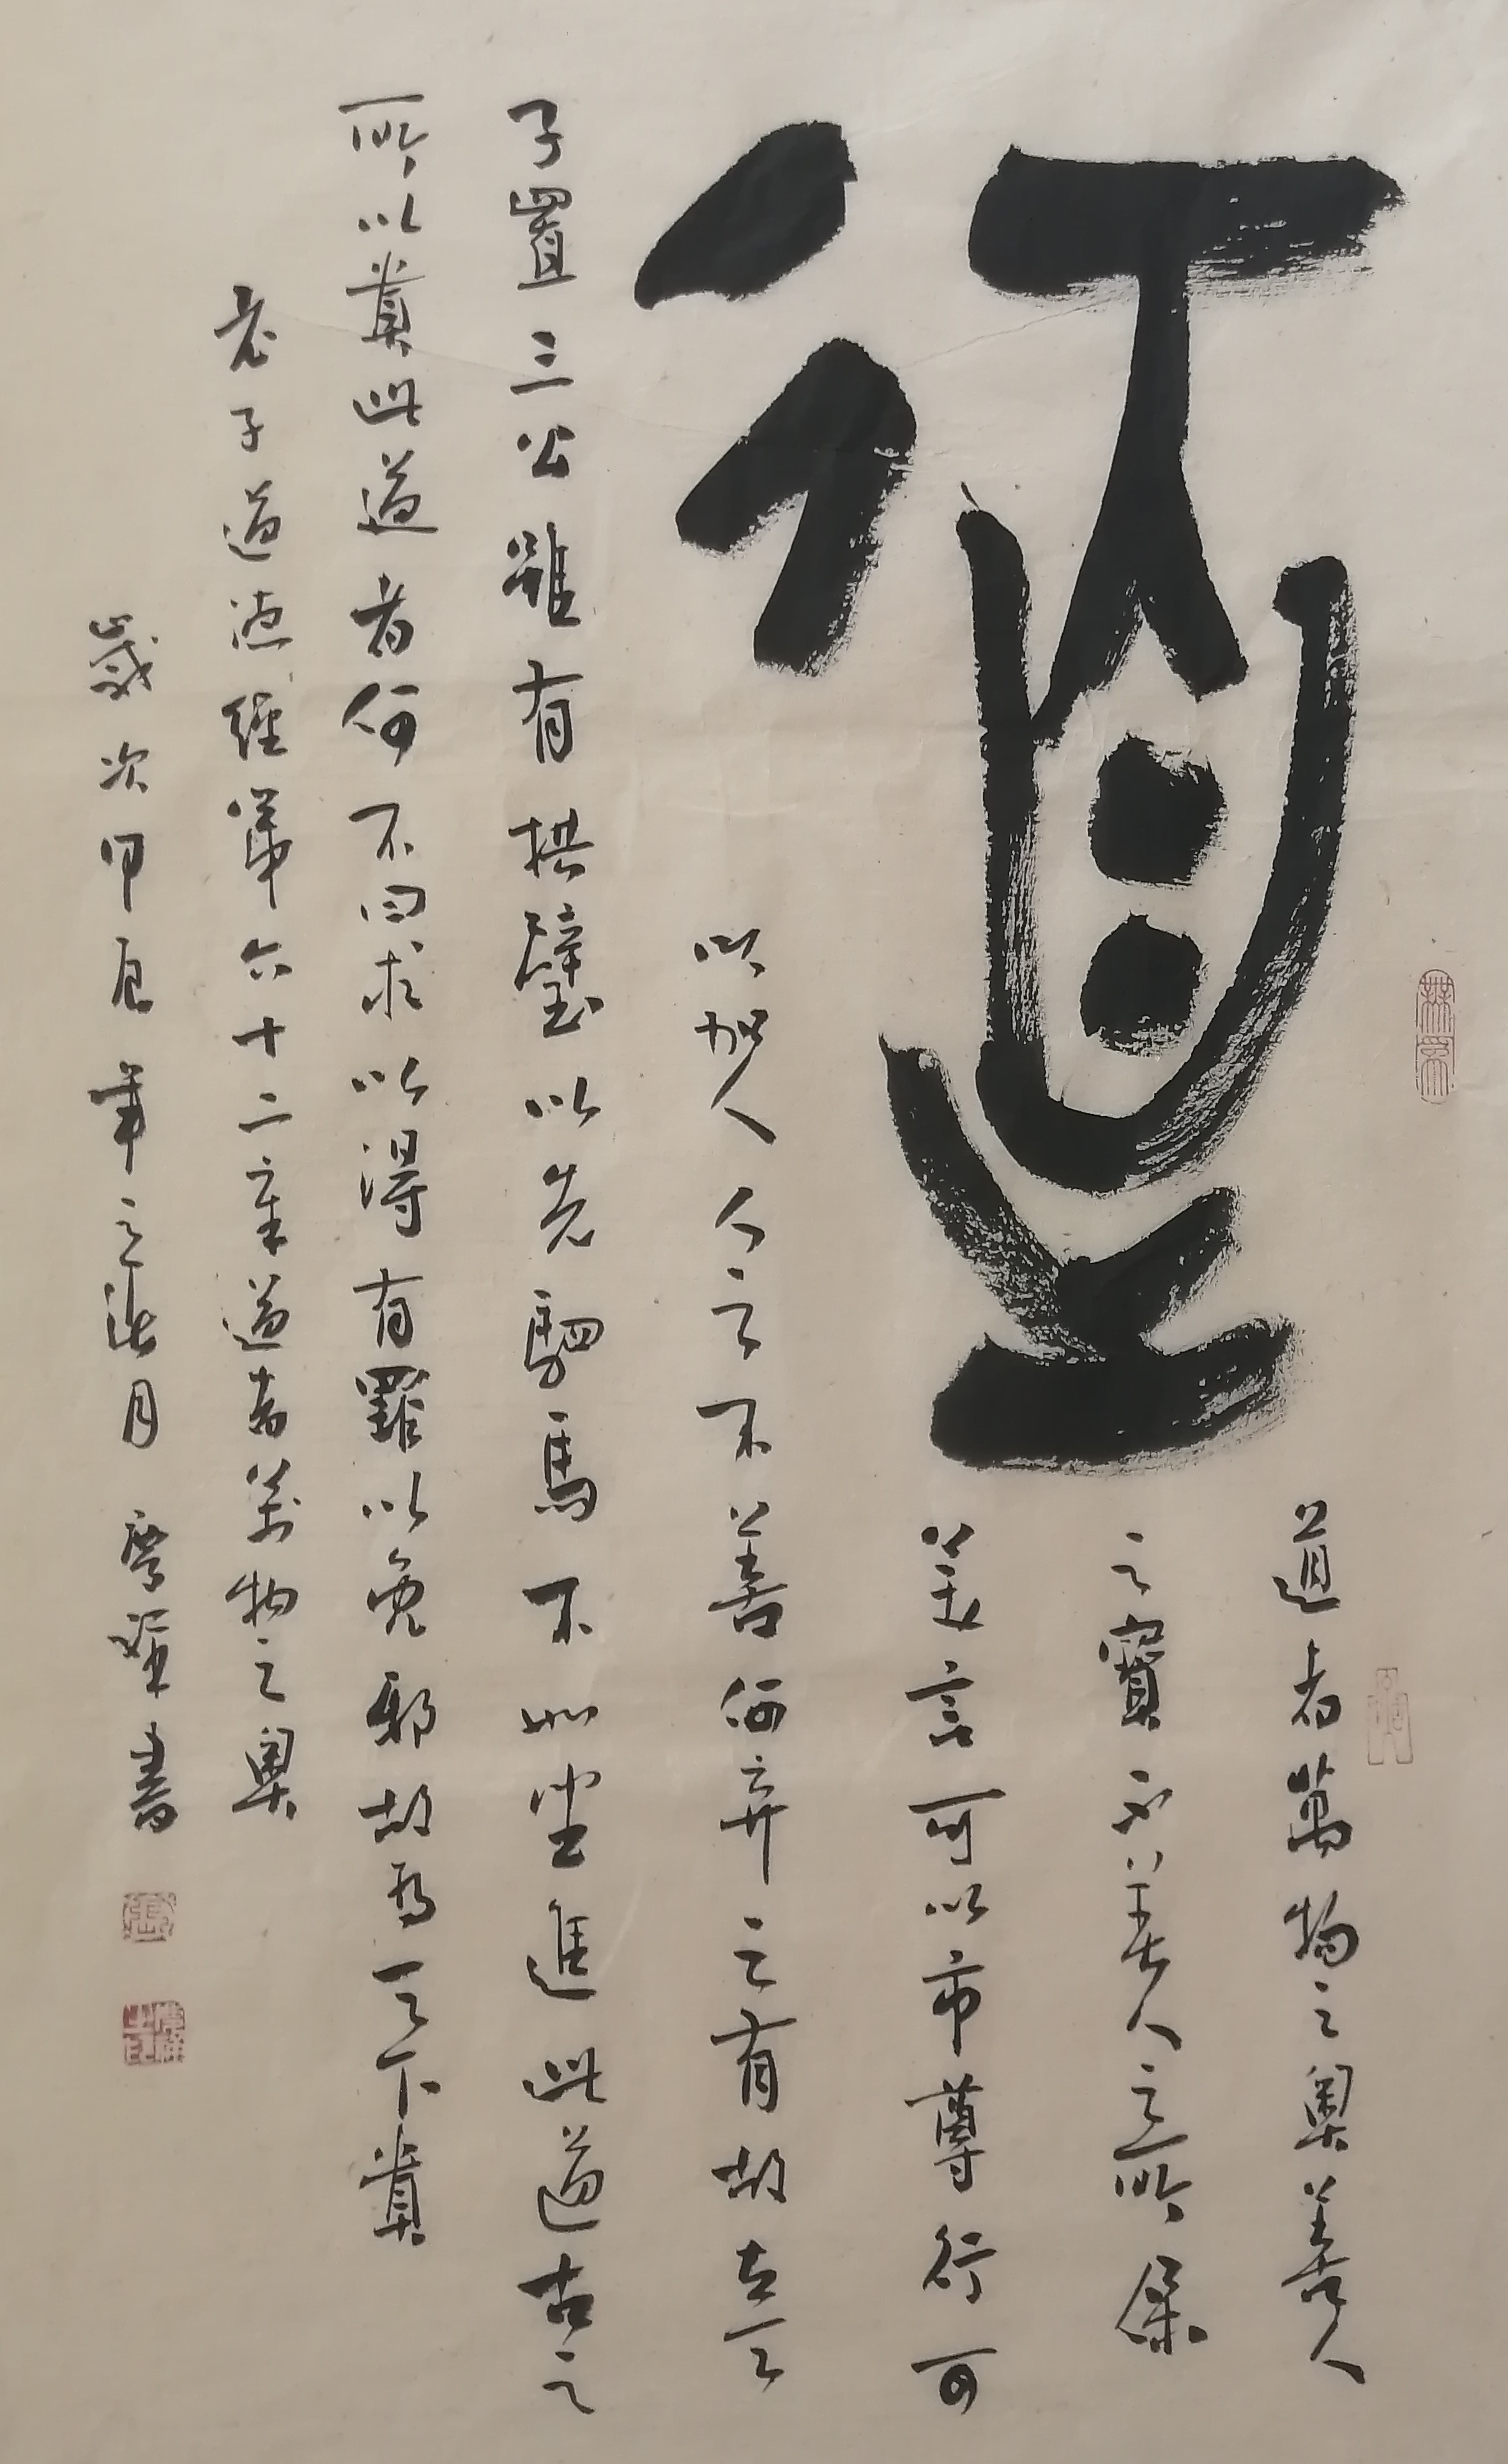 道
道者萬物之奧善人
之寶不善人之所保
美言可以市尊行可
以加人人之不善何弃之有故立天
子置三公雖有拱璧以先駟馬不如坐進此道古之
所以貴此道者何不曰求以得有罪以免邪故為天下貴
老子道德經第六十二章道者萬物之奧
歲次甲辰年之荷月 書